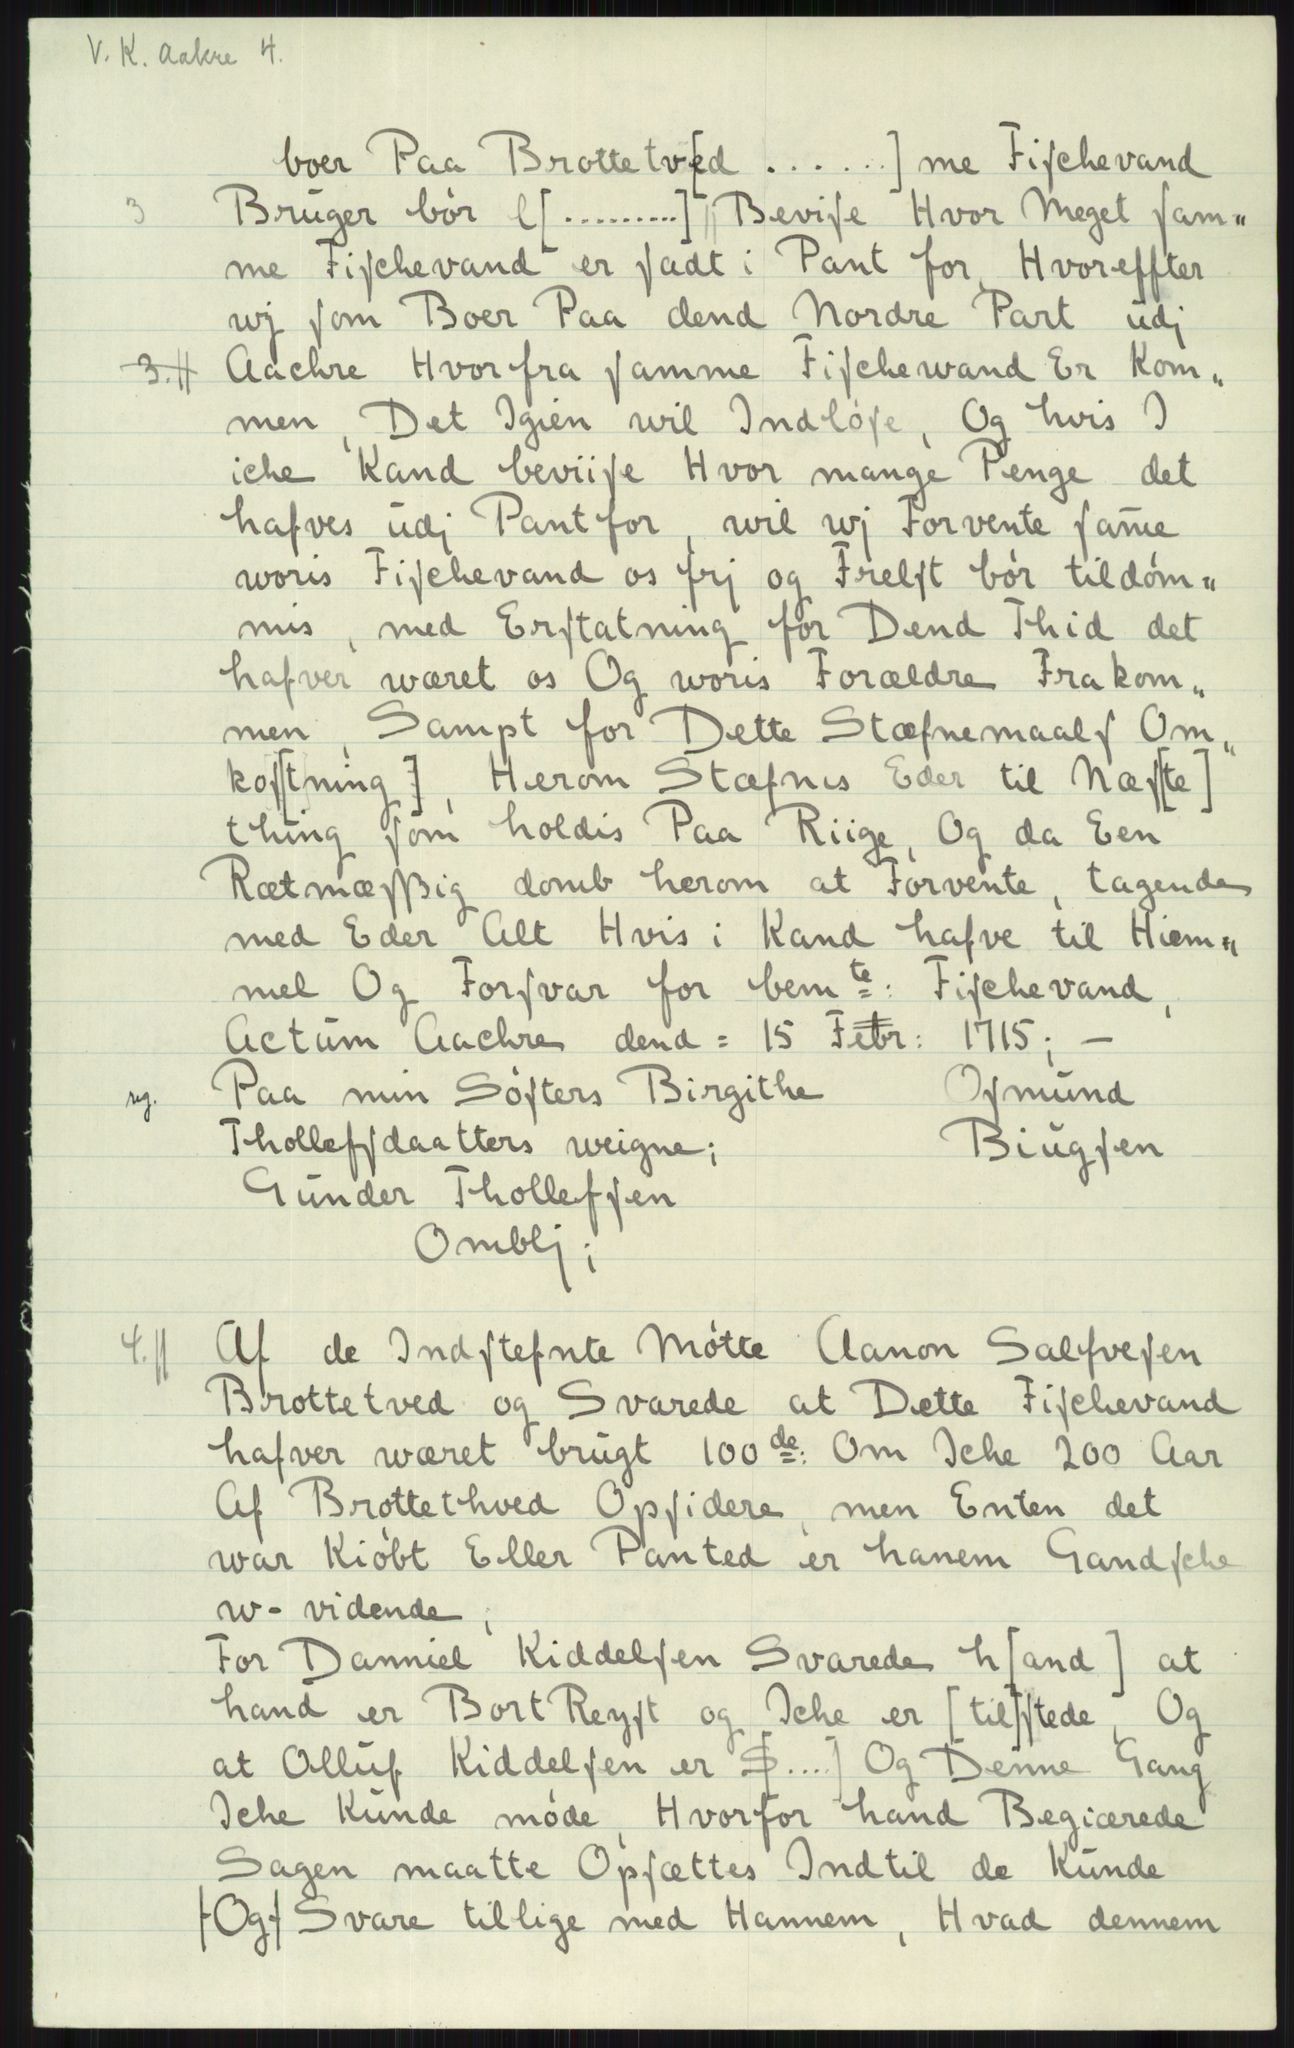 V. K. Aakre 4.
boer Paa Brottetv[ed . . . . . .] me Fiſchevand
3 Brŭger bór l[.........] || Beviſe Hvor Meget ſam„
me Fiſchevand er ſadt i Pant for, Hvoreffter
wj ſom Boer Paa dend Nordre Part ŭdj
3.|| Aachre Hvorfra ſamme Fiſchewand Er Kom„
men, Det Igien wil Indlóſe, Og hvis I
iche Kand beviiſe Hvor mange Penge det
hafves ŭdj Pant for, wil wj Forvente ſam̄e
woris Fiſchevand os frj og Frelſt bór tildóm„
mis, med Erſtatning for Dend Thid det
hafver wæret os Og woris Forældre Frakom„
men, Sampt for Dette Stæfnemaalſ Om„
koſ[tning], Herom Stæfnis Eder til Næſ[te]
thing ſom holdis Paa Riige, Og da Een
Rætmæſſig domb herom at Forvente, tagende
med Eder Alt Hvis i Kand hafve til Hiem„
mel Og Forſvar for bem te: Fiſchevand,
Actŭm Aachre dend = 15 Febr: 1715; —
rg. Paa min Sóſters Birgithe Oſmŭnd
Tholleffdaatters weigne; Biŭgſen
Gŭnder Tholleffen
Omblj;
4.|| Af de Indſtefnte Mótte Aanon Salfveſen
Brottetved og Svarede at Dette Fiſchevand
hafver wæret brŭgt 100 de: Om Iche 200 Aar
Af Brottethved Opſidere, men Enten det
war Kióbt Eller Panted er hanem Gandſche
w- vidende;
For Danniel Kiddelſen Svarede h[and] at
hand er Bort Reyſt og Iche er [til]ſtede, Og
at Ollŭf Kiddelſen er S[....] Og Denne Gang
Iche Kŭnde móde, Hvorfor hand Begiærede
Sagen maatte Opſættes Indtil de Kŭnde
[Og] Svare tillige med Hannem, Hvad dennem